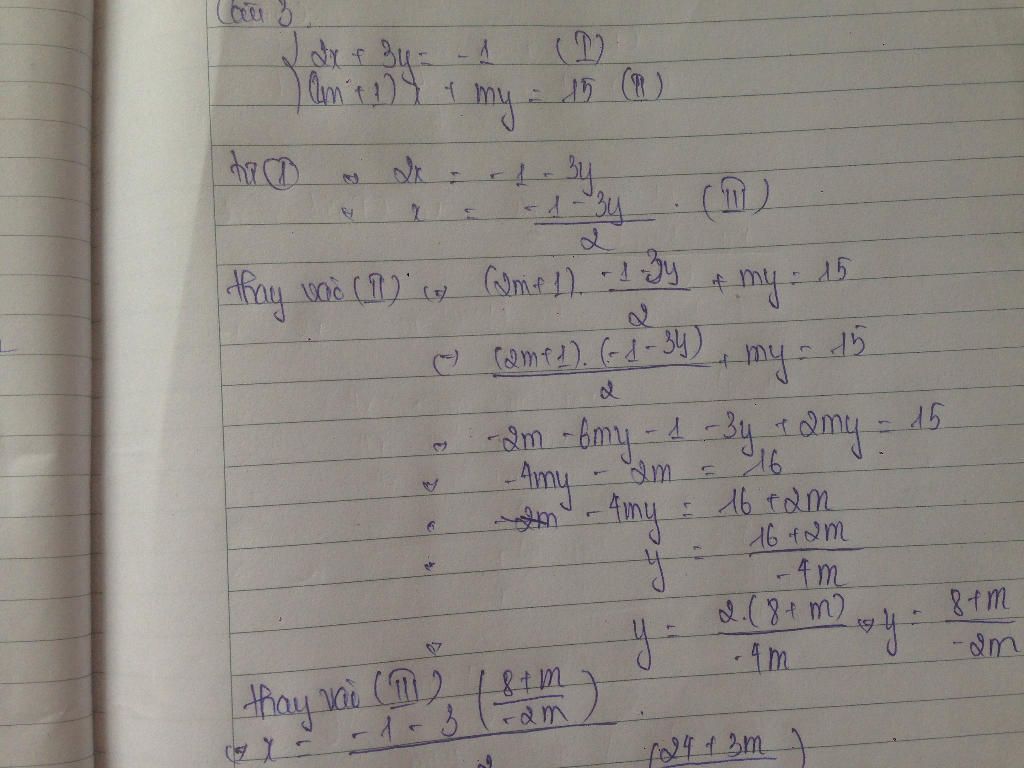 Câu 3
2x + 3y = -1 (I)
(2m+1) x + my = 15 (II)
từ (I) ⇔ 2x = -1 - 3y
⇔ x = (-1 - 3y)/2 . (III)
thay vào (II) ⇔ (2m+1) . (-1-3y)/2 + my = 15
⇔ ((2m+1).(-1-3y))/2 + my = 15
⇔ -2m - 6my - 1 - 3y + 2my = 15
⇔ -4my - 2m = 16
⇔ - 4my = 16 + 2m
⇔ y = (16 + 2m)/(-4m)
⇔ y = (2.(8+m))/(-4m) ⇔ y = (8+m)/(-2m)
thay vào (III)
⇔ x = (-1 - 3 ((8+m)/(-2m)))/2 .
(24 + 3m)